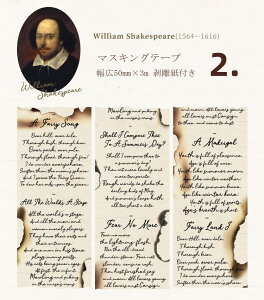 William Shakespeare(1564—1616)
マスキングテープ
幅広50mm×3m 剥離紙付き
2.
William
Shakespeare
A Fairy Song
Over hill, over dale,
Through bush, through brier,
Over park, over pale,
Through flood, through fire!
I do wander everywhere,
Swifter than the moon's sphere;
And I serve the Fairy Queen,
To dew her orbs upon the green;
All The World's A Stage
All the world's a stage,
And all the men and
women merely players;
They have their exits and
their entrances,
And one man in his time
plays many parts,
His acts being seven ages.
At first, the infant,
Mewling and puking
in the nurse's arms.
Mewling and puking
in the nurse's arms.
Shall I Compare Thee
To A Summer's Day?
Shall I compare thee to
a summer's day?
Thou art more lovely and
more temperate.
Rough winds do shake the
darling buds of May,
And summer's lease hath
all too short a date.
Fear No More
Fear no more
the lightning-flash,
Nor the all-dreaded
thunder-stone;
Fear not slander,
censure rash;
Thou hast finish'd joy
and moan;
all lovers young,
all lovers must Consign
to thee, and come to dust.
A Madrigal
Youth is full of pleasance,
Age is full of care;
Youth like summer morn,
Age like winter weather;
Youth like summer brave,
Age like winter bare.
Youth is full of sport,
Age's breath is short;
Fairy Land I
Over hill, over dale,
Through bush, through brier,
Over park, over pale,
Through flood, through fire,
I do wander everywhere,
Swifter than the moon's
sphere;